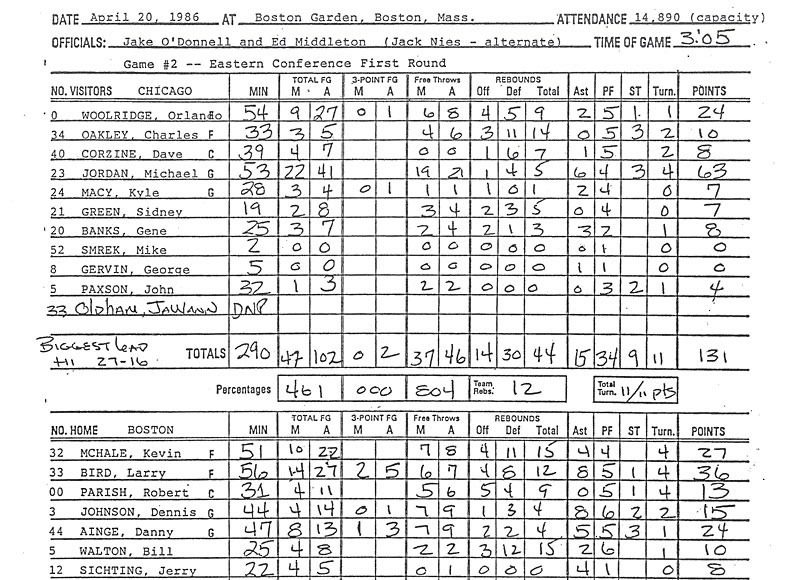 DATE April 20, 1986 AT Boston Garden, Boston, Mass. ATTENDANCE 14,890 (capacity)
OFFICIALS: Jake O'Donnell and Ed Middleton (Jack Nies - alternate) TIME OF GAME 3:05
Game #2 -- Eastern Conference First Round
TOTAL FG 3-POINT FG Free Throws REBOUNDS
NO. VISITORS CHICAGO MIN M A M A M A Off Def Total Ast PF ST Turn. POINTS
0 WOOLRIDGE, Orlando 54 9 27 0 1 6 8 4 5 9 2 5 1 1 24
34 OAKLEY, Charles F 33 3 5 4 6 3 11 14 0 5 3 2 10
40 CORZINE, Dave C 39 4 7 0 0 1 6 7 1 5 2 8
23 JORDAN, Michael G 53 22 41 19 21 1 4 5 6 4 3 4 63
24 MACY, Kyle G 28 3 4 0 1 1 1 1 0 1 2 4 0 7
21 GREEN, Sidney 19 2 8 3 4 2 3 5 0 4 0 7
20 BANKS, Gene 25 3 7 2 4 2 1 3 3 2 1 8
52 SMREK, Mike 2 0 0 0 0 0 0 0 0 1 0 0
8 GERVIN, George 5 0 0 0 0 0 0 0 1 1 0 0
5 PAXSON, John 32 1 3 2 2 0 0 0 0 3 2 1 4
33 Oldham, Jawann DNP
Biggest lead
HI 27-16 TOTALS 290 47 102 0 2 37 46 14 30 44 15 34 9 11 131
Percentages 461 000 804 Team Rebs. 12 Total Turn. 11/11 pts
TOTAL FG 3-POINT FG Free Throws REBOUNDS
NO. HOME BOSTON MIN M A M A M A Off Def Total Ast PF ST Turn. POINTS
32 MCHALE, Kevin F 51 10 22 7 8 4 11 15 4 4 4 27
33 BIRD, Larry F 56 14 27 2 5 6 7 4 8 12 8 5 1 4 36
00 PARISH, Robert C 31 4 11 5 6 5 4 9 0 5 1 4 13
3 JOHNSON, Dennis G 44 4 14 0 1 7 9 1 3 4 8 6 2 2 15
44 AINGE, Danny G 47 8 13 1 3 7 9 2 2 4 5 5 3 1 24
5 WALTON, Bill 25 4 8 2 2 3 12 15 2 6 1 10
12 SICHTING, Jerry 22 4 5 0 1 0 0 0 4 1 0 8